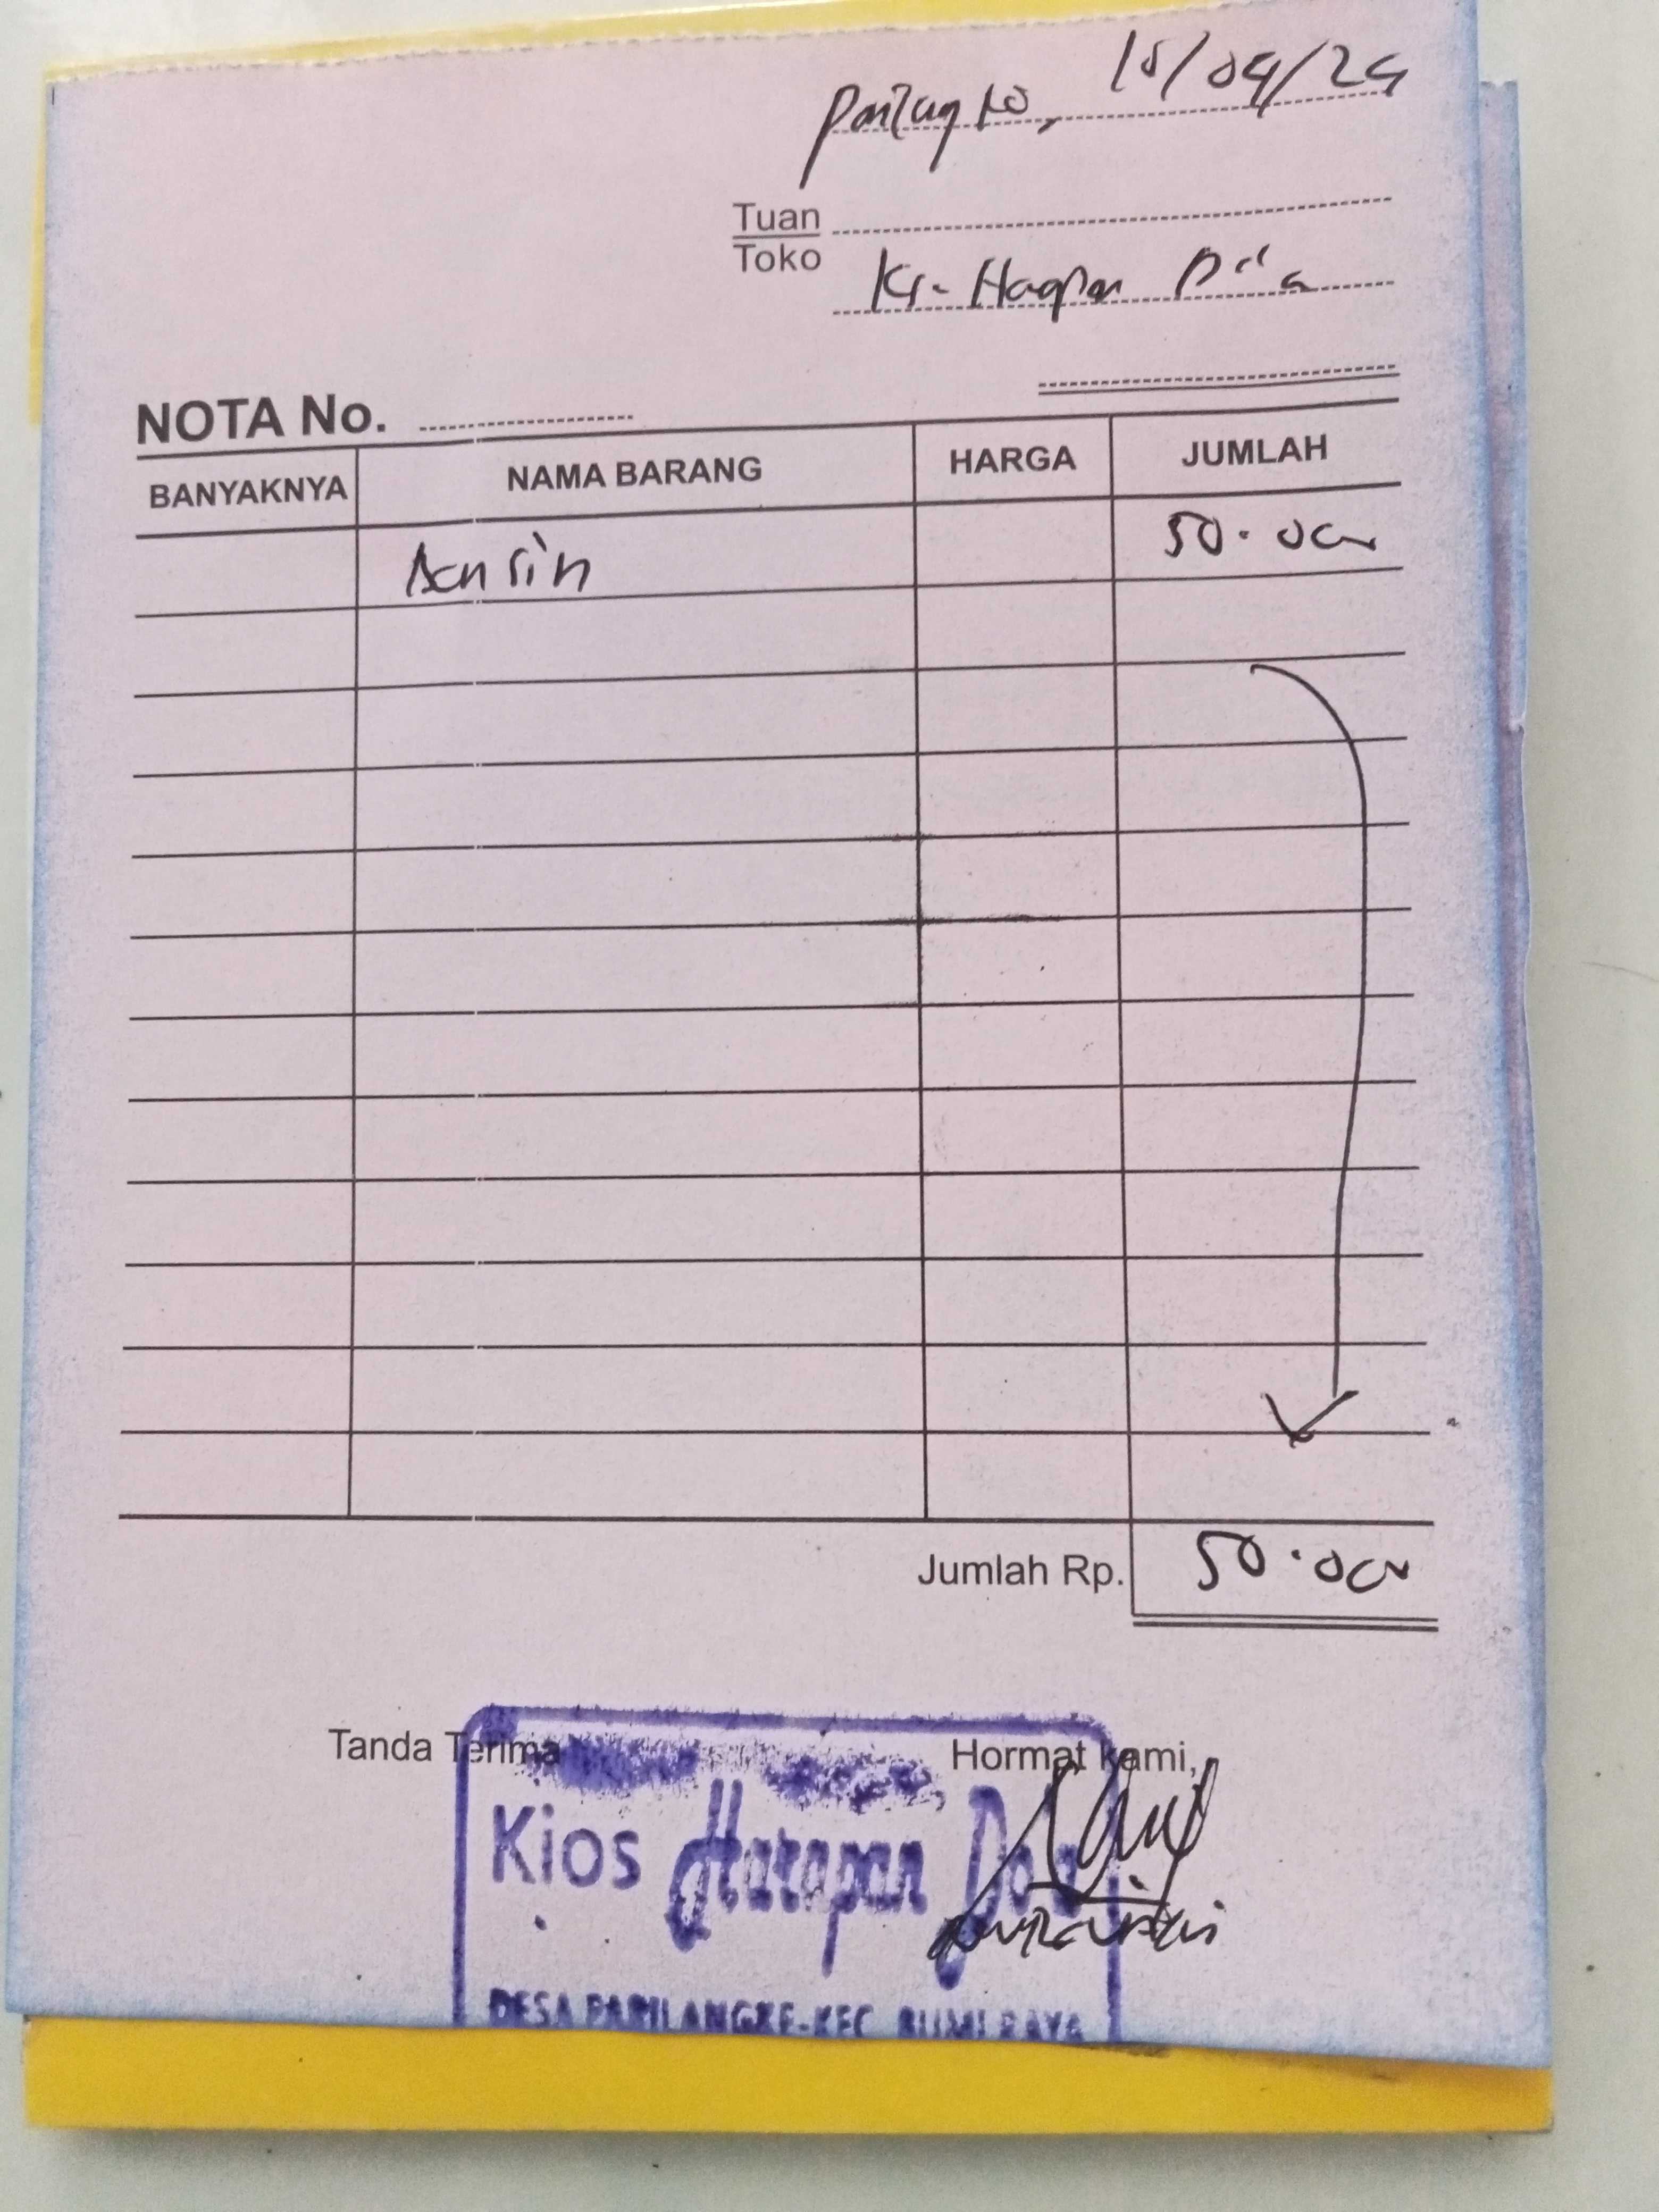 15/04/24
Tuan
Toko
NOTA No.
BANYAKNYA NAMA BARANG HARGA JUMLAH
Bensin 50.000
Jumlah Rp. 50.000
Tanda Terima Hormat kami,
Kios Harapan Doa
DESA PARILANGKE-KEC BUMI RAYA